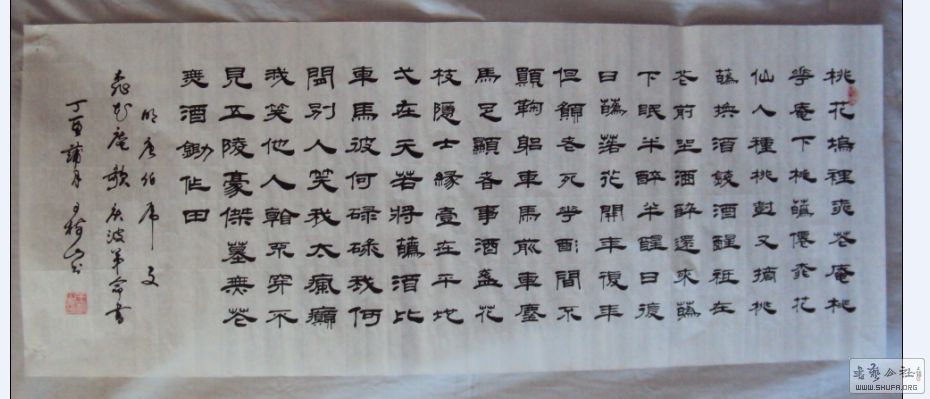 桃花塢裡桃花庵桃
花庵下桃蘤僊桃花
仙人種桃樹又摘桃
蘤換酒錢酒醒祗在
花前坐酒醉還來蘤
下眠半醉半醒日復
日蘤落花開年復年
但願老死花酒間不
願鞠躬車馬前車塵
馬足顯者事酒盞花
枝隱士緣壹在平地
弌在天若將蘤酒比
車馬彼何碌碌我何
閒別人笑我太瘋癲
我笑他人看不穿不
見五陵豪傑墓無花
無酒鋤作田
明唐伯虎文
桃花庵歌
丁酉蒲月
书艺公社
WWW.SHUFA.ORG